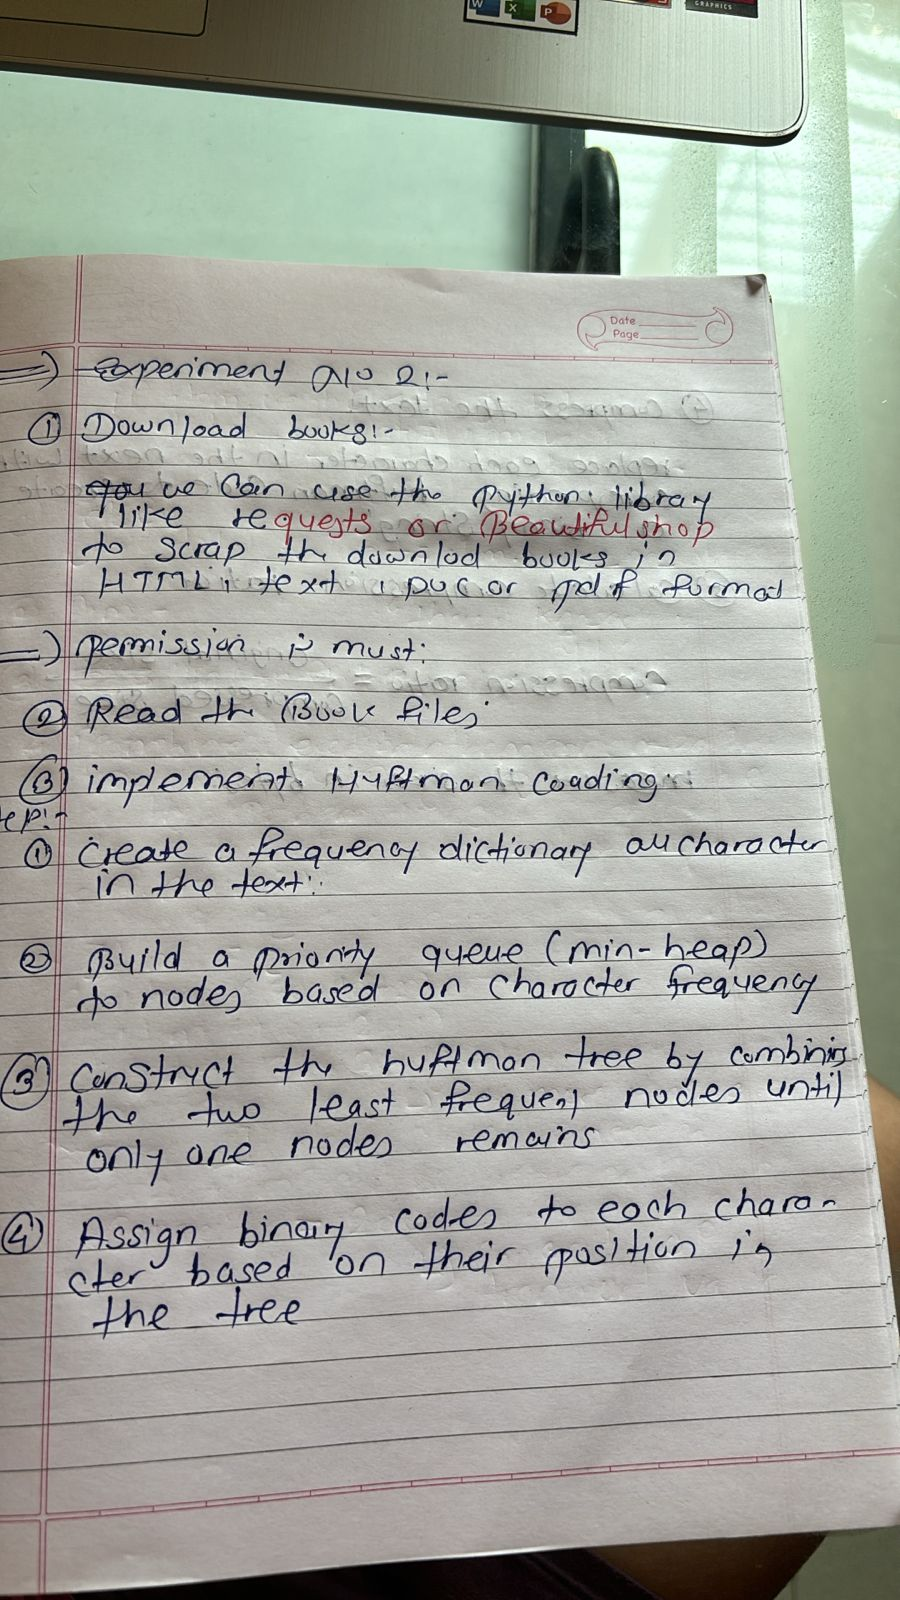 W X P
GRAPHICS
Date
Page
=) Experiment No 2:-
① Download books:-
you we can use the python library
like requests or Beautiful shop
to scrap the downlod books in
HTML, text, DOC or pdf format
=) permission is must:
② Read the Book files
③ implement Huffman Coading
tep:-
① Create a frequency dictionary all character
in the text:
② Build a priority queue (min-heap)
to nodes based on character frequency
③ Construct the huffman tree by combining
the two least frequent nodes until
only one nodes remains
④ Assign binary codes to each chara-
cter based on their position in
the tree